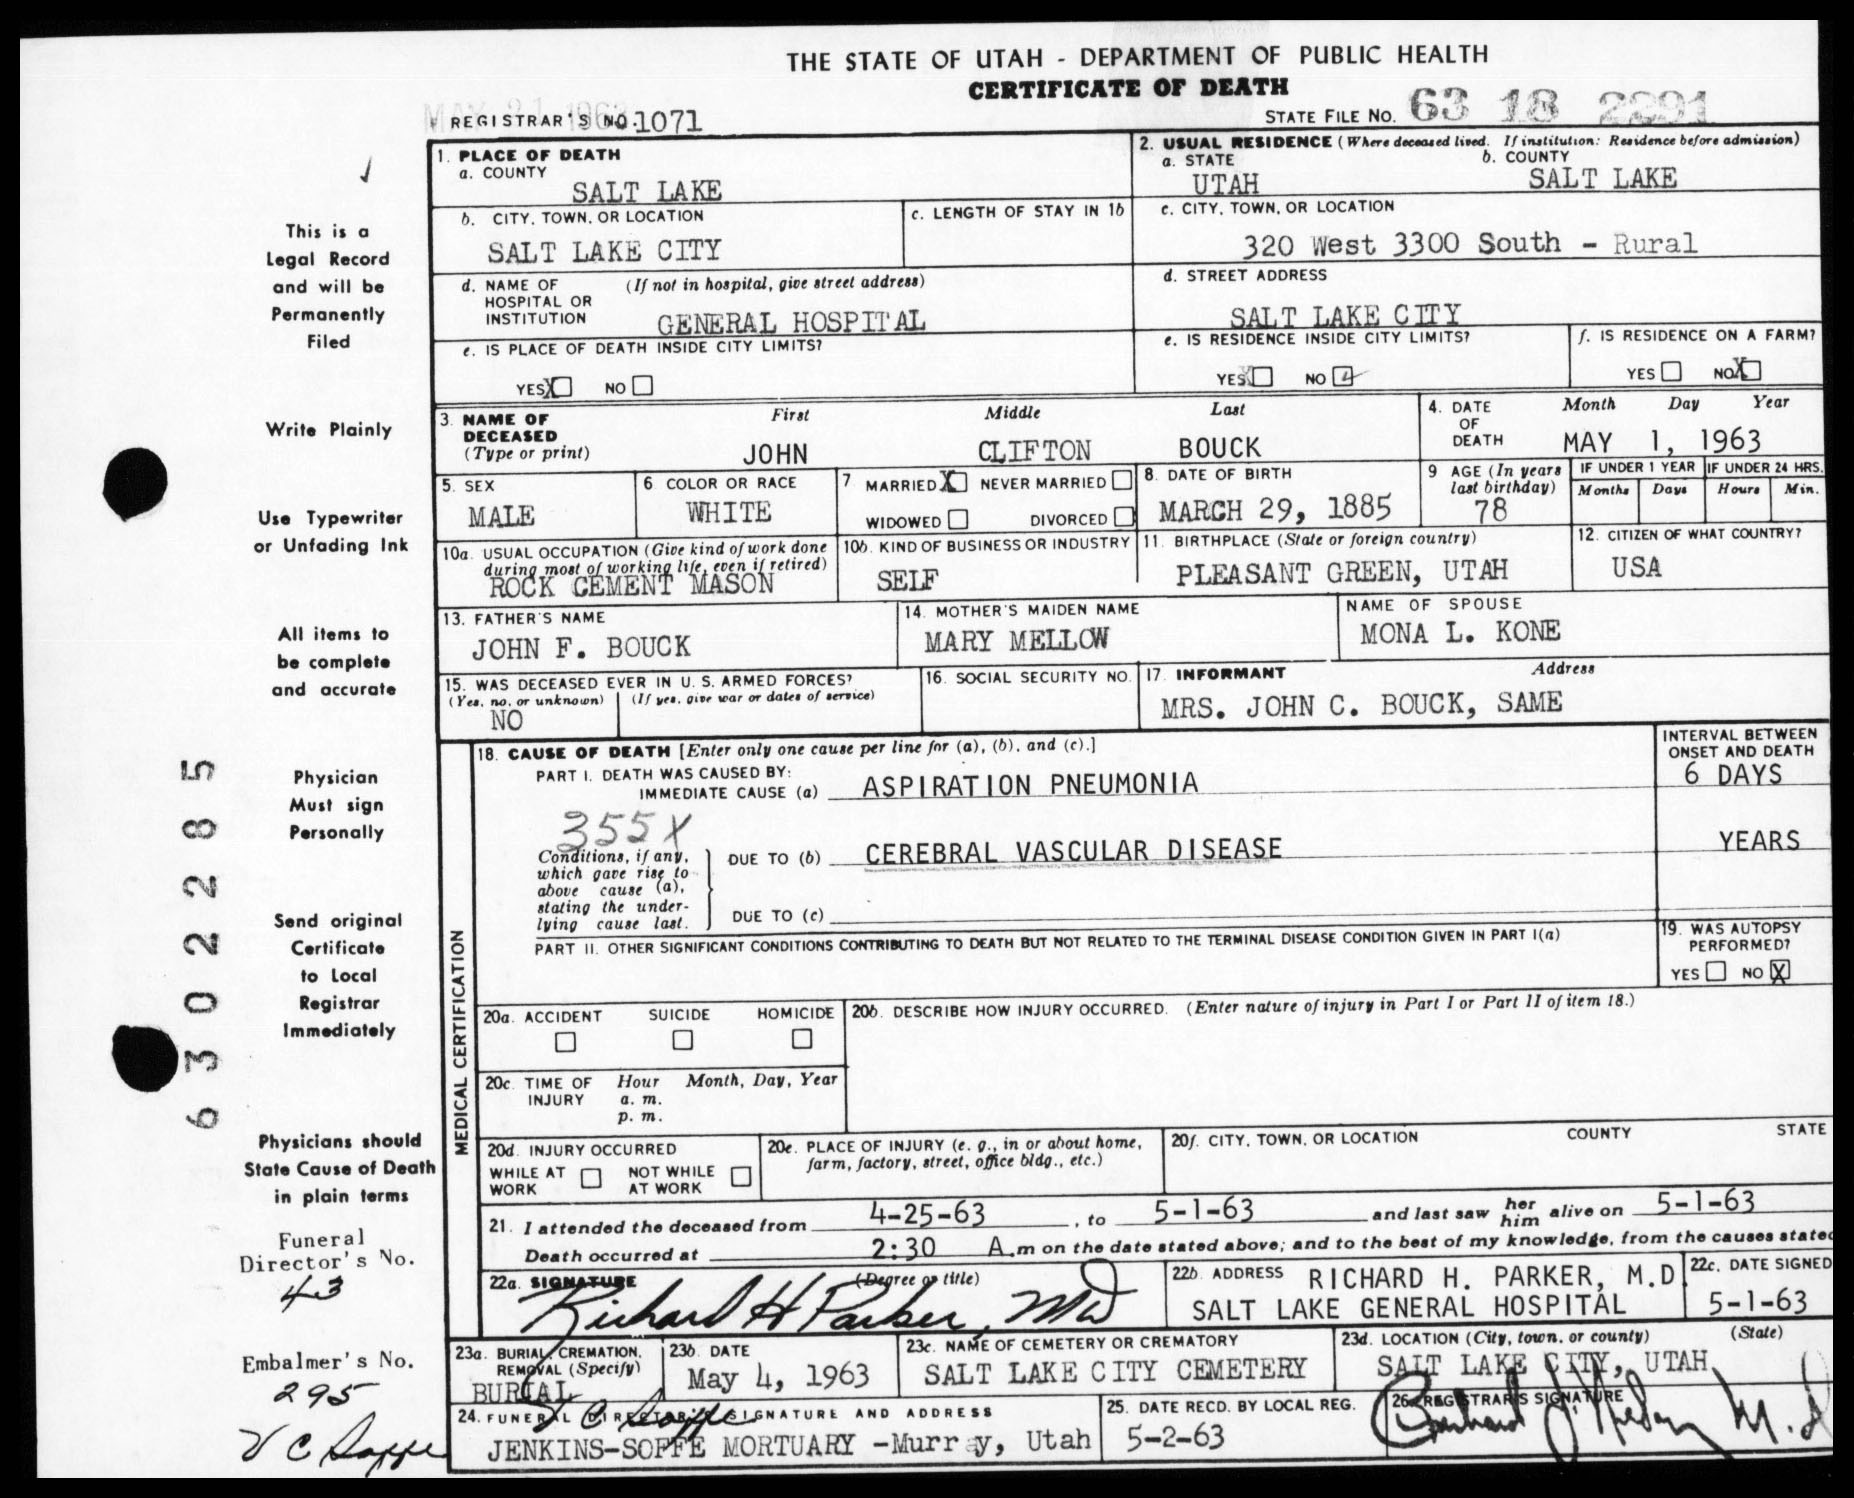 THE STATE OF UTAH - DEPARTMENT OF PUBLIC HEALTH
CERTIFICATE OF DEATH
MAY 21 1963
REGISTRAR'S NO. 1071
STATE FILE NO. 63 18 2291
1. PLACE OF DEATH
a. COUNTY
SALT LAKE
2. USUAL RESIDENCE (Where deceased lived. If institution: Residence before admission)
a. STATE
UTAH
b. COUNTY
SALT LAKE
b. CITY, TOWN, OR LOCATION
SALT LAKE CITY
c. LENGTH OF STAY IN 1b
c. CITY, TOWN, OR LOCATION
320 West 3300 South - Rural
d. NAME OF HOSPITAL OR INSTITUTION
(If not in hospital, give street address)
GENERAL HOSPITAL
d. STREET ADDRESS
SALT LAKE CITY
e. IS PLACE OF DEATH INSIDE CITY LIMITS?
YES X NO
e. IS RESIDENCE INSIDE CITY LIMITS?
YES X NO
f. IS RESIDENCE ON A FARM?
YES NO X
3. NAME OF DECEASED
(Type or print)
First Middle Last
JOHN CLIFTON BOUCK
4. DATE OF DEATH
Month Day Year
MAY 1, 1963
5. SEX
MALE
6 COLOR OR RACE
WHITE
7 MARRIED X NEVER MARRIED
WIDOWED DIVORCED
8. DATE OF BIRTH
MARCH 29, 1885
9 AGE (In years last birthday)
78
IF UNDER 1 YEAR
Months Days
IF UNDER 24 HRS.
Hours Min.
10a. USUAL OCCUPATION (Give kind of work done
during most of working life, even if retired)
ROCK CEMENT MASON
10b. KIND OF BUSINESS OR INDUSTRY
SELF
11. BIRTHPLACE (State or foreign country)
PLEASANT GREEN, UTAH
12. CITIZEN OF WHAT COUNTRY?
USA
13. FATHER'S NAME
JOHN F. BOUCK
14. MOTHER'S MAIDEN NAME
MARY MELLOW
NAME OF SPOUSE
MONA L. KONE
15. WAS DECEASED EVER IN U. S. ARMED FORCES?
(Yes, no, or unknown)
(If yes, give war or dates of service)
NO
16. SOCIAL SECURITY NO.
17. INFORMANT Address
MRS. JOHN C. BOUCK, SAME
MEDICAL CERTIFICATION
18. CAUSE OF DEATH [Enter only one cause per line for (a), (b), and (c).]
INTERVAL BETWEEN
ONSET AND DEATH
PART I. DEATH WAS CAUSED BY:
IMMEDIATE CAUSE (a) ASPIRATION PNEUMONIA
6 DAYS
355X
Conditions, if any,
which gave rise to
above cause (a),
stating the under-
lying cause last.
DUE TO (b) CEREBRAL VASCULAR DISEASE
YEARS
DUE TO (c)
PART II. OTHER SIGNIFICANT CONDITIONS CONTRIBUTING TO DEATH BUT NOT RELATED TO THE TERMINAL DISEASE CONDITION GIVEN IN PART I(a)
19. WAS AUTOPSY
PERFORMED?
YES NO X
20a. ACCIDENT SUICIDE HOMICIDE
20b. DESCRIBE HOW INJURY OCCURRED. (Enter nature of injury in Part I or Part II of item 18.)
20c. TIME OF INJURY
Hour Month, Day, Year
a. m.
p. m.
20d. INJURY OCCURRED
WHILE AT WORK NOT WHILE AT WORK
20e. PLACE OF INJURY (e. g., in or about home,
farm, factory, street, office bldg., etc.)
20f. CITY, TOWN, OR LOCATION COUNTY STATE
21. I attended the deceased from 4-25-63, to 5-1-63 and last saw her him alive on 5-1-63
Death occurred at 2:30 A.m on the date stated above; and to the best of my knowledge, from the causes stated
22a. SIGNATURE (Degree or title)
Richard H Parker, MD
22b. ADDRESS RICHARD H. PARKER, M.D
SALT LAKE GENERAL HOSPITAL
22c. DATE SIGNED
5-1-63
23a. BURIAL, CREMATION,
REMOVAL (Specify)
BURIAL
23b. DATE
May 4, 1963
23c. NAME OF CEMETERY OR CREMATORY
SALT LAKE CITY CEMETERY
23d. LOCATION (City, town, or county) (State)
SALT LAKE CITY, UTAH
24. FUNERAL DIRECTOR'S SIGNATURE AND ADDRESS
V C Soffe
JENKINS-SOFFE MORTUARY -Murray, Utah
25. DATE RECD. BY LOCAL REG.
5-2-63
26. REGISTRAR'S SIGNATURE
M.D
This is a
Legal Record
and will be
Permanently
Filed
Write Plainly
Use Typewriter
or Unfading Ink
All items to
be complete
and accurate
Physician
Must sign
Personally
Send original
Certificate
to Local
Registrar
Immediately
Physicians should
State Cause of Death
in plain terms
Funeral
Director's No.
43
Embalmer's No.
295
V C Soffe
6302285